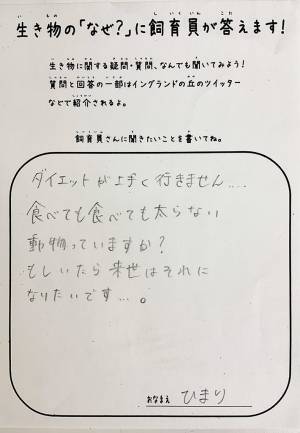 生き物の「なぜ?」に飼育員が答えます!
生き物に関する疑問・質問、なんでも聞いてみよう!
質問と回答の一部はイングランドの丘のツイッター
などで紹介されるよ。
飼育員さんに聞きたいことを書いてね。
ダイエットが上手く行きません....
食べても食べても太らない
動物っていますか?
もしいたら来世はそれに
なりたいです...。
おなまえ ひまり